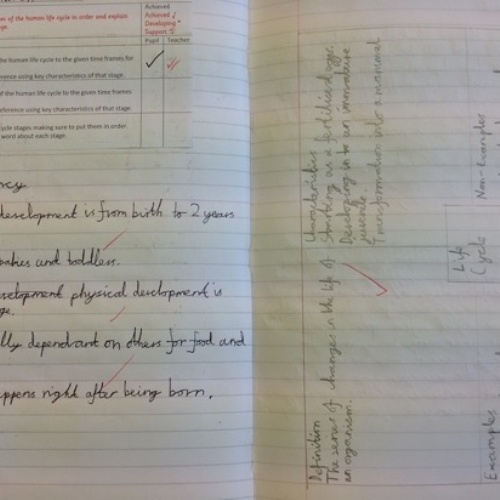 es of the human life cycle in order and explain
ge.
Achieved
Achieved
Developing
Support
Pupil Teacher
the human life cycle to the given time frames for
erence using key characteristics of that stage.
of the human life cycle to the given time frames
eference using key characteristics of that stage.
cycle stages making sure to put them in order
word about each stage.
ncy
development is from birth to 2 years
babies and toddlers.
evelopment physical development is
ge.
lly dependant on others for food and
appens right after being born.
Definition
The series of changes in the life of
an organism.
Characteristics
Starting as a fertilised egg.
Developing in to an immature
juvenile.
Transformation into a
Life
Cycle
Examples
Non-Examples